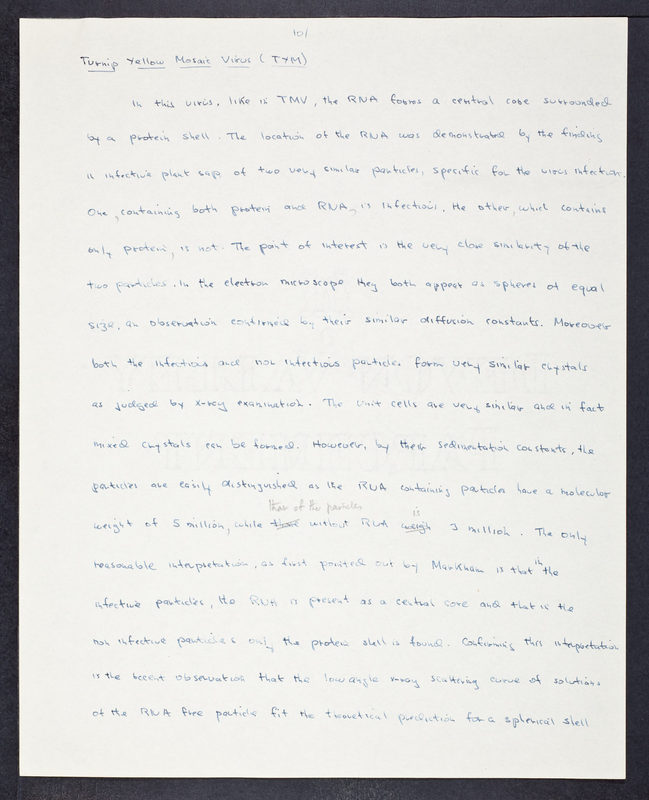 101
Turnip Yellow Mosaic Virus (TYM)
In this virus, like in TMV, the RNA forms a central core surrounded
by a protein shell. The location of the RNA was demonstrated by the finding
in infective plant sap of two very similar particles, specific for the virus infection.
One, containing both protein and RNA, is infectious, the other, which contains
only protein, is not. The point of interest is the very close similarity of the
two particles. In the electron microscope they both appear as spheres of equal
size, an observation confirmed by their similar diffusion constants. Moreover
both the infectious and non infectious particles form very similar crystals
as judged by x-ray examination. The unit cells are very similar and in fact
mixed crystals can be formed. However, by their sedimentation constants, the
particles are easily distinguished as the RNA containing particles have a molecular
that of the particles is
weight of 5 million, while those without RNA weigh 3 million. The only
reasonable interpretation, as first pointed out by Markham is that in the
infective particles, the RNA is present as a central core and that in the
non infective particles only the protein shell is found. Confirming this interpretation
is the recent observation that the low angle x-ray scattering curve of solutions
of the RNA free particle fit the theoretical prediction for a spherical shell